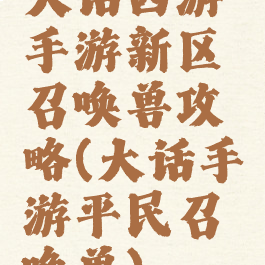 大话西游
手游新区
召唤兽攻
略(大话手
游平民召
唤兽)